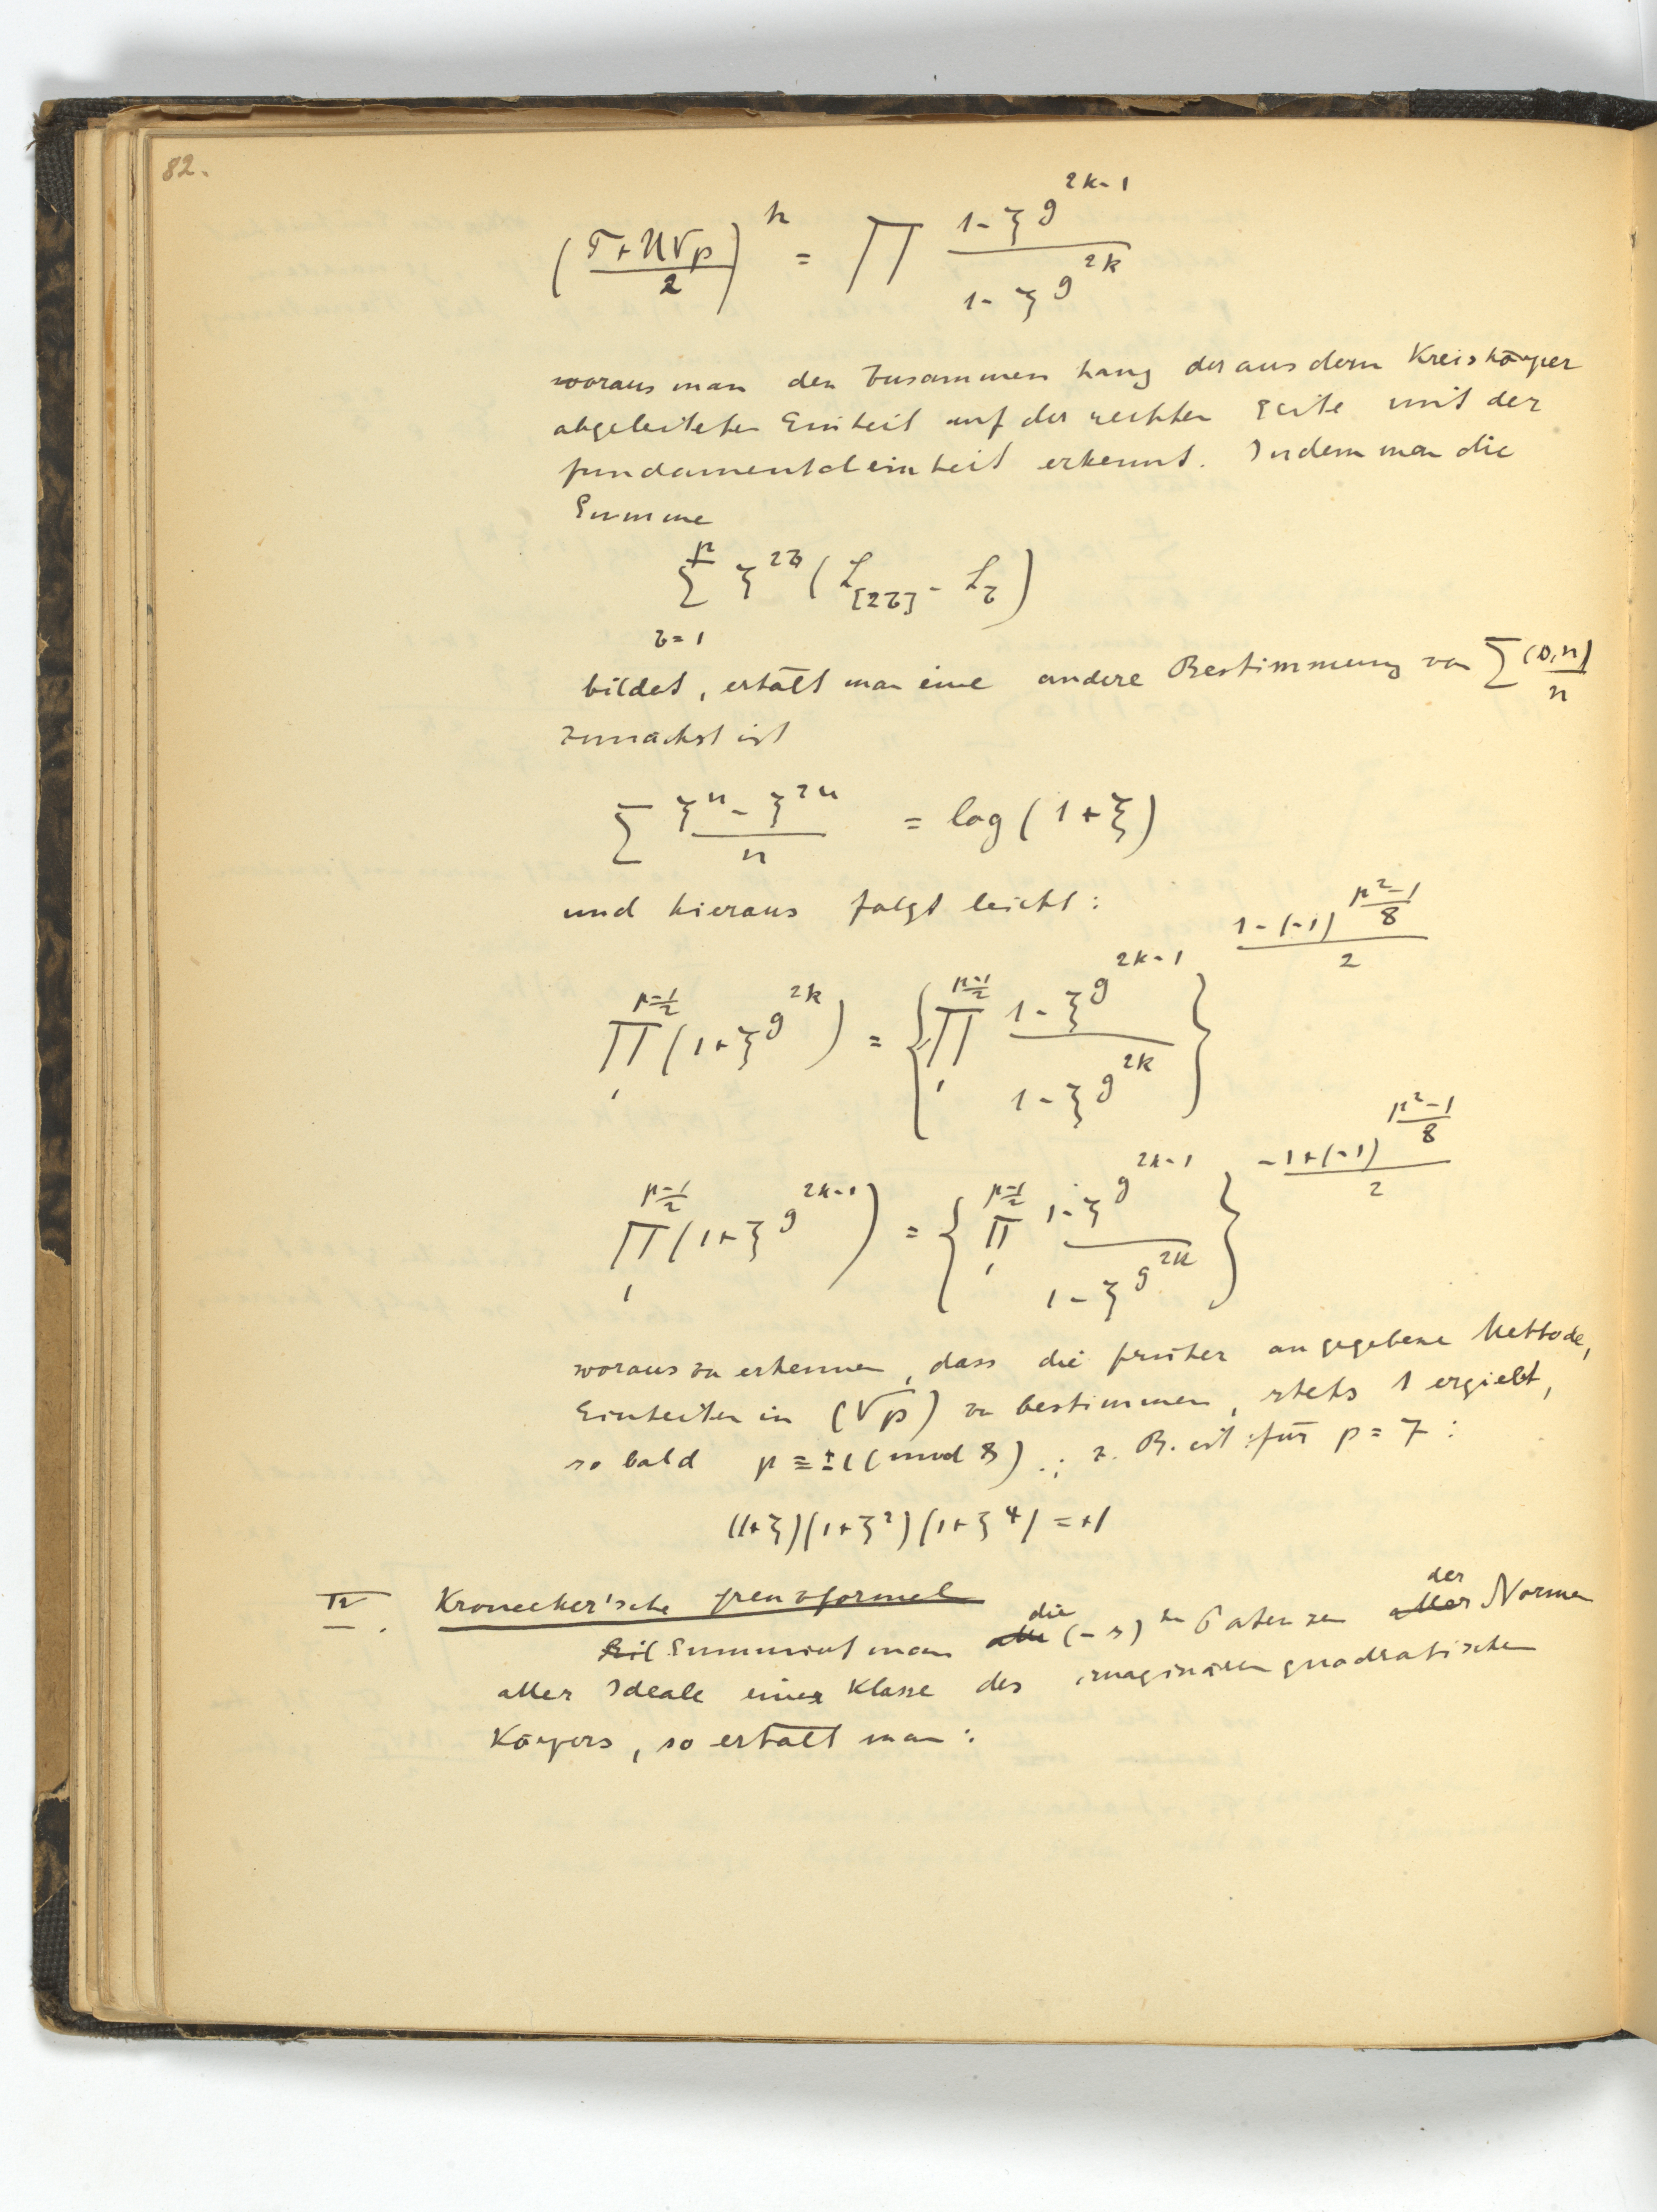 82.
(T+U√p / 2)^h = ∏ (1-ζ^g^(2k-1)) / (1-ζ^g^(2k))
woraus man den Zusammenhang der aus dem Kreiskörper
abgeleiteten Einheit auf der rechten Seite mit der
fundamentaleinheit erkennt. Indem man die
Summe
∑_(τ=1)^p ζ^(2τ) (L_[2τ] - L_τ)
bildet, erhält man eine andere Bestimmung von ∑ (D,n)/n
Zunächst ist
∑ (ζ^n - ζ^(2n))/n = log (1+ζ)
und hieraus folgt leicht:
∏_1^((p-1)/2) (1+ζ^g^(2k)) = {∏_1^((p-1)/2) (1-ζ^g^(2k-1)) / (1-ζ^g^(2k))}^((1-(-1)^((p²-1)/8))/2)
∏_1^((p-1)/2) (1+ζ^g^(2k-1)) = {∏_1^((p-1)/2) (1-ζ^g^(2k-1)) / (1-ζ^g^(2k))}^((-1+(-1)^((p²-1)/8))/2)
woraus zu erkennen, dass die früher angegebene Methode,
Einheiten in (√p) zu bestimmen, stets 1 ergiebt,
so bald p ≡ ±1 (mod 8).; z. B. ist für p = 7:
(1+ζ)(1+ζ²)(1+ζ⁴) = +1
IV. Kronecker'sche grenzformel
Summirt man die (-s)ten Potenzen der Normen
aller Ideale einer Klasse des imaginären quadratischen
Körpers, so erhält man: